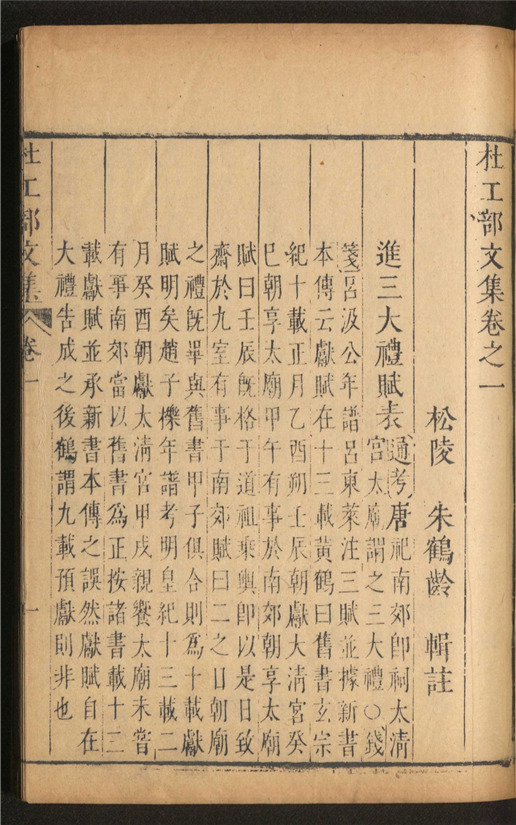 杜工部文集卷之一
松陵 朱鶴齡 輯註
進三大禮賦表
通考唐祀南郊卽祠太清
宮太廟謂之三大禮○錢
箋呂汲公年譜呂東萊注三賦並據新書
本傳云獻賦在十三載黃鶴曰舊書玄宗
紀十載正月乙酉朔壬辰朝獻太清宮癸
巳朝享太廟甲午有事於南郊朝享太廟
賦曰壬辰旣格于道祖乘輿卽以是日致
齋於九室有事于南郊賦曰二之日朝廟
之禮旣畢與舊書甲子俱合則爲十載獻
賦明矣趙子櫟年譜考明皇紀十三載二
月癸酉朝獻太清宮甲戌親饗太廟未嘗
有事南郊當以舊書爲正按諸書載十二
載獻賦並承新書本傳之誤然獻賦自在
大禮告成之後鶴謂九載預獻則非也
杜工部文集 卷一 一